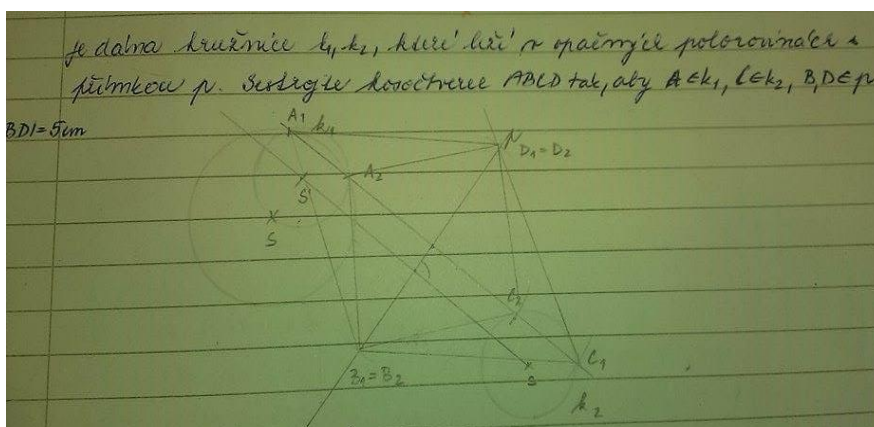 je dána kružnice k1, k2, které leží v opačných polorovinách s
přímkou p. Sestrojte kosočtverec ABCD tak, aby A∈k1, C∈k2, B,D∈p
BD|=5cm
A1 k1
p D1=D2
A2
S'
S
C2
C1
B1=B2
S
k2